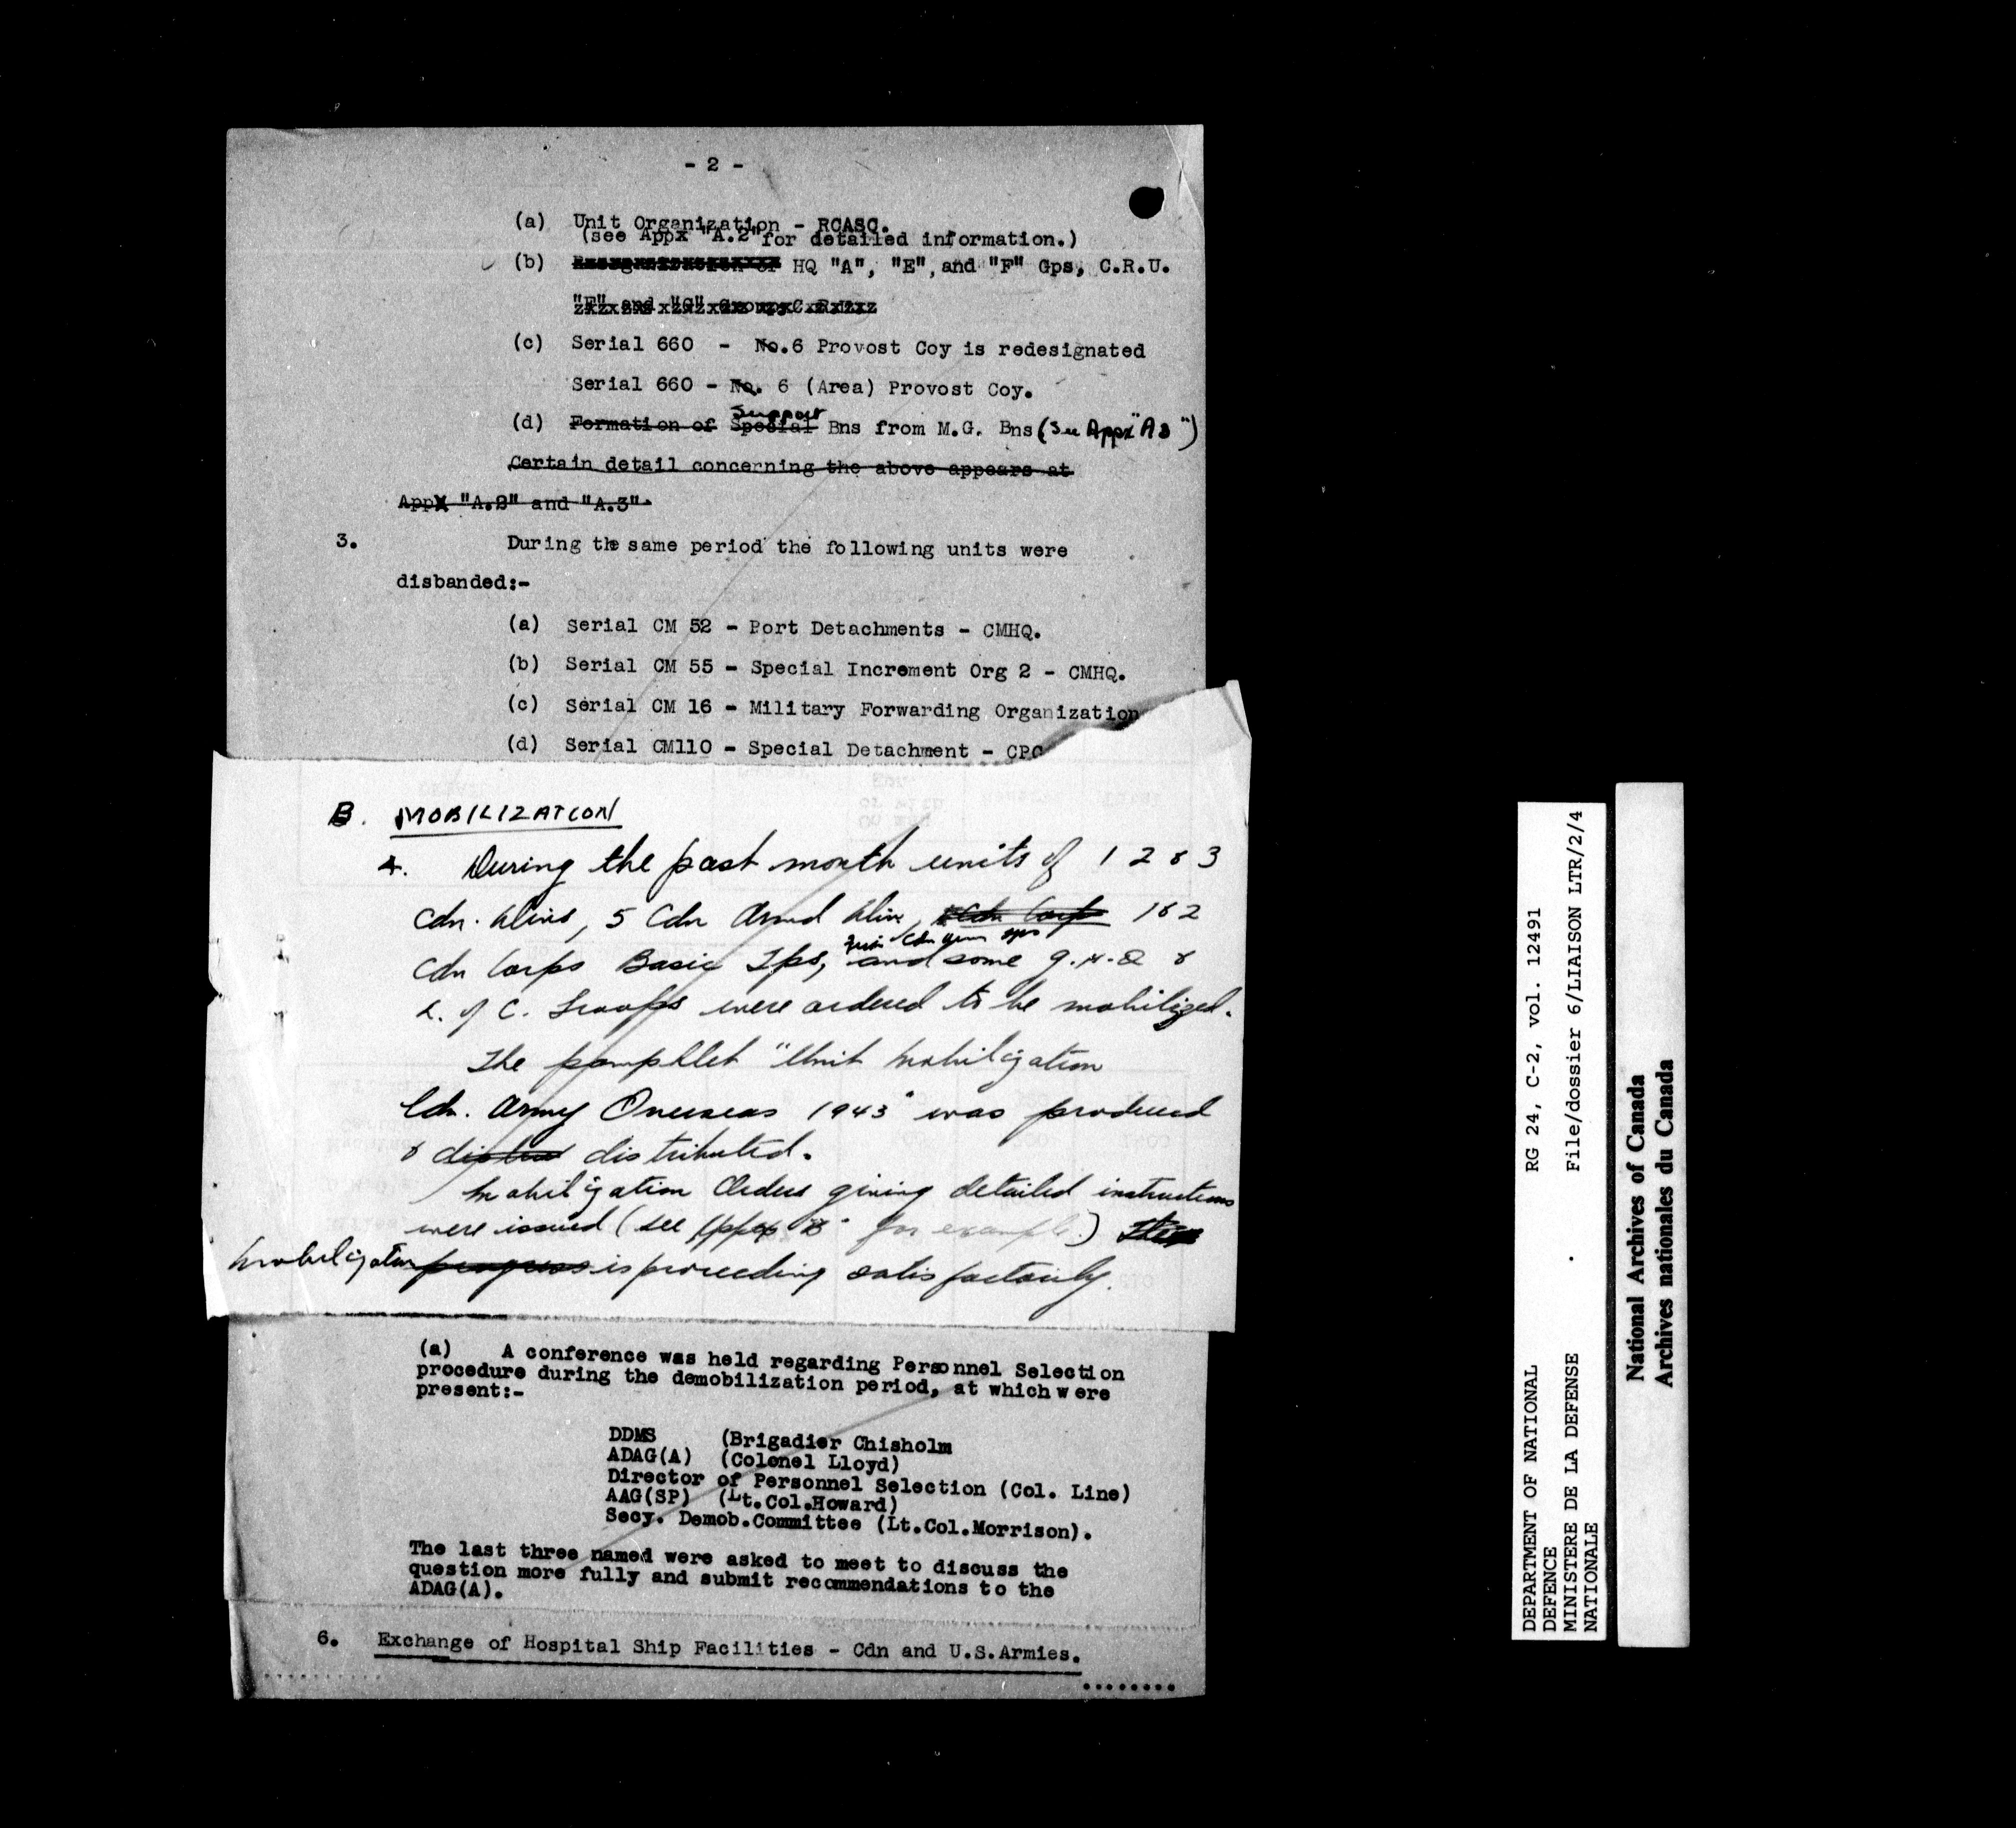 - 2 -
(a) Unit Organization - RCASC.
(see Appx "A.2" for detailed information.)
(b) HQ "A", "E", and "F" Gps, C.R.U.
"F" and "G" Group C.R.U.
(c) Serial 660 - No.6 Provost Coy is redesignated
Serial 660 - No. 6 (Area) Provost Coy.
Support
(d) Formation of Special Bns from M.G. Bns (See Appx "A3")
Certain detail concerning the above appears at
Appx "A.2" and "A.3".
3. During the same period the following units were
disbanded:-
(a) Serial CM 52 - Port Detachments - CMHQ.
(b) Serial CM 55 - Special Increment Org 2 - CMHQ.
(c) Serial CM 16 - Military Forwarding Organization
(d) Serial CM110 - Special Detachment - CPC
B. MOBILIZATION
4. During the past month units of 1 2 & 3
Cdn. Divs, 5 Cdn Armd Div, Cdn Corps 1 & 2
Cdn Army tps
Cdn Corps Basic Tps, and some G.H.Q &
L. of C. Troops were ordered to be mobilized.
The pamphlet "Unit Mobilization
Cdn. Army Overseas 1943" was produced
& distributed.
Mobilization Orders giving detailed instructions
were issued (see Appx "B" for example.)
Mobilization progress is proceeding satisfactorily.
(a) A conference was held regarding Personnel Selection
procedure during the demobilization period, at which were
present:-
DDMS (Brigadier Chisholm
ADAG(A) (Colonel Lloyd)
Director of Personnel Selection (Col. Line)
AAG(SP) (Lt.Col.Howard)
Secy. Demob.Committee (Lt.Col.Morrison).
The last three named were asked to meet to discuss the
question more fully and submit recommendations to the
ADAG(A).
6. Exchange of Hospital Ship Facilities - Cdn and U.S.Armies.
........
DEPARTMENT OF NATIONAL RG 24, C-2, vol. 12491
DEFENCE
MINISTERE DE LA DEFENSE File/dossier 6/LIAISON LTR/2/4
NATIONALE
National Archives of Canada
Archives nationales du Canada